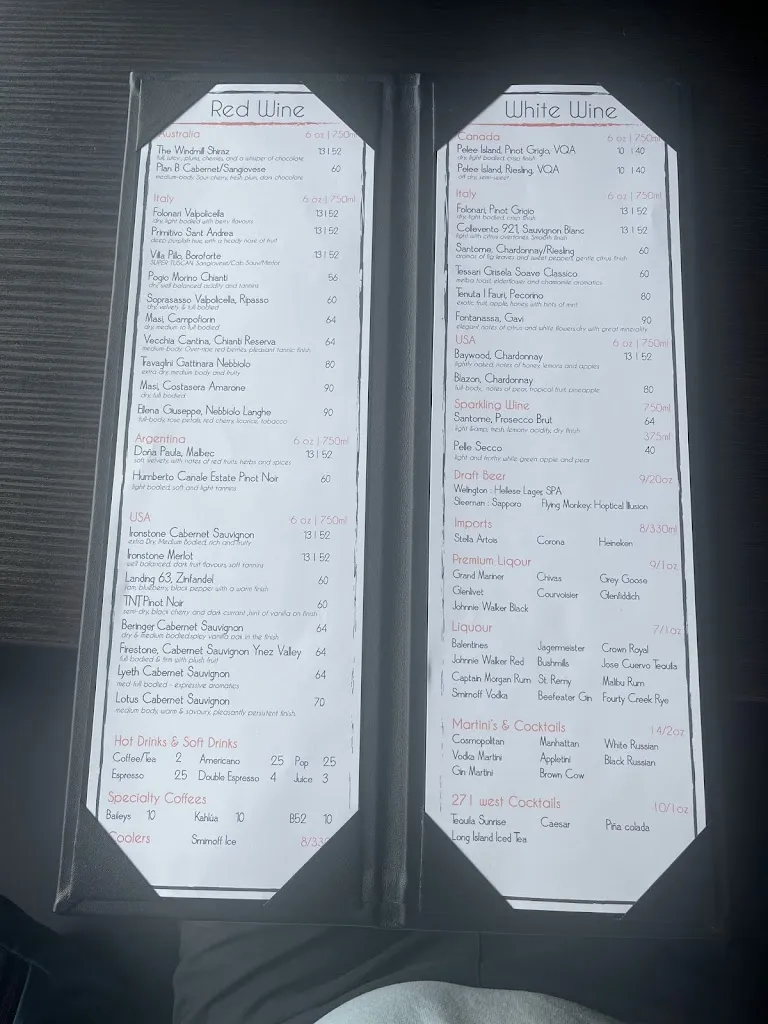 Red Wine
Australia 6 oz | 750ml
The Windmill Shiraz 13 | 52
full, juicy, plum, cherries, and a whisper of chocolate
Plan B Cabernet/Sangiovese 60
medium-body Sour cherry, fresh plum, dark chocolate
Italy 6 oz | 750ml
Folonari Valpolicella 13 | 52
dry, light bodied with berry flavours
Primitivo Sant Andrea 13 | 52
deep purplish hue, with a heady nose of fruit
Villa Pillo, Borgoforte 13 | 52
SUPER TUSCAN Sangiovese/Cab Sauv/Merlot
Pogio Morino Chianti 56
dry, well balanced acidity and tannins
Soprasasso Valpolicella, Ripasso 60
dry, velvety & full bodied
Masi, Campofiorin 64
dry, medium to full bodied
Vecchia Cantina, Chianti Reserva 64
medium-body Over-ripe red berries, pleasant tannic finish
Travaglini Gattinara Nebbiolo 80
extra dry, medium body and fruity
Masi, Costasera Amarone 90
dry, full bodied
Ellena Giuseppe, Nebbiolo Langhe 90
full-body, rose petals, red cherry, licorice, tobacco
Argentina 6 oz | 750ml
Doña Paula, Malbec 13 | 52
soft, velvety, with notes of red fruits, herbs and spices
Humberto Canale Estate Pinot Noir 60
light bodied, soft and light tannins
USA 6 oz | 750ml
Ironstone Cabernet Sauvignon 13 | 52
extra Dry, Medium Bodied, rich and fruity
Ironstone Merlot 13 | 52
well balanced, dark fruit flavours, soft tannins
Landing 63, Zinfandel 60
jam, blueberry, black pepper with a warm finish
TNT Pinot Noir 60
semi-dry, black cherry and dark currant, hint of vanilla on finish
Beringer Cabernet Sauvignon 64
dry & medium bodied, spicy vanilla oak in the finish
Firestone, Cabernet Sauvignon Ynez Valley 64
full bodied & firm with plush fruit
Lyeth Cabernet Sauvignon 64
med-full bodied - expressive aromatics
Lotus Cabernet Sauvignon 70
medium body, warm & savoury, pleasantly persistent finish
Hot Drinks & Soft Drinks
Coffee/Tea 2 Americano 2.5 Pop 2.5
Espresso 2.5 Double Espresso 4 Juice 3
Specialty Coffees
Baileys 10 Kahlúa 10 B52 10
Coolers Smirnoff Ice 8/33
White Wine
Canada 6 oz | 750ml
Pelee Island, Pinot Grigio, VQA 10 | 40
dry, light bodied, crisp finish
Pelee Island, Riesling, VQA 10 | 40
off dry, semi-sweet
Italy 6 oz | 750ml
Folonari, Pinot Grigio 13 | 52
dry, light bodied, crisp finish
Collevento 921, Sauvignon Blanc 13 | 52
light with citrus overtones. Smooth finish
Santome, Chardonnay/Riesling 60
aromas of fig leaves and sweet peppers, gentle citrus finish
Tessari Grisela Soave Classico 60
melba toast, elderflower and chamomile aromatics
Tenuta I Fauri, Pecorino 80
exotic fruit, apple, honey, with hints of mint
Fontanassa, Gavi 90
elegant notes of citrus and white flowers, dry with great minerality
USA 6 oz | 750ml
Baywood, Chardonnay 13 | 52
lightly oaked, notes of honey, lemons and apples
Blazon, Chardonnay 80
full-body, notes of pear, tropical fruit, pineapple
Sparkling Wine 750ml
Santome, Prosecco Brut 64
light &amp, fresh, lemony acidity, dry finish
375ml
Pelle Secco 40
light and frothy white green apple and pear
Draft Beer 9/20oz
Wellington : Hellese Lager, SPA
Sleeman : Sapporo Flying Monkey: Hoptical Illusion
Imports 8/330ml
Stella Artois Corona Heineken
Premium Liqour 9/1oz
Grand Mariner Chivas Grey Goose
Glenlivet Courvoisier Glenfiddich
Johnnie Walker Black
Liquour 7/1oz
Balentines Jagermeister Crown Royal
Johnnie Walker Red Bushmills Jose Cuervo Tequila
Captain Morgan Rum St. Remy Malibu Rum
Smirnoff Vodka Beefeater Gin Fourty Creek Rye
Martini's & Cocktails 14/2oz
Cosmopolitan Manhattan White Russian
Vodka Martini Appletini Black Russian
Gin Martini Brown Cow
271 west Cocktails 10/1oz
Tequila Sunrise Caesar Piña colada
Long Island Iced Tea